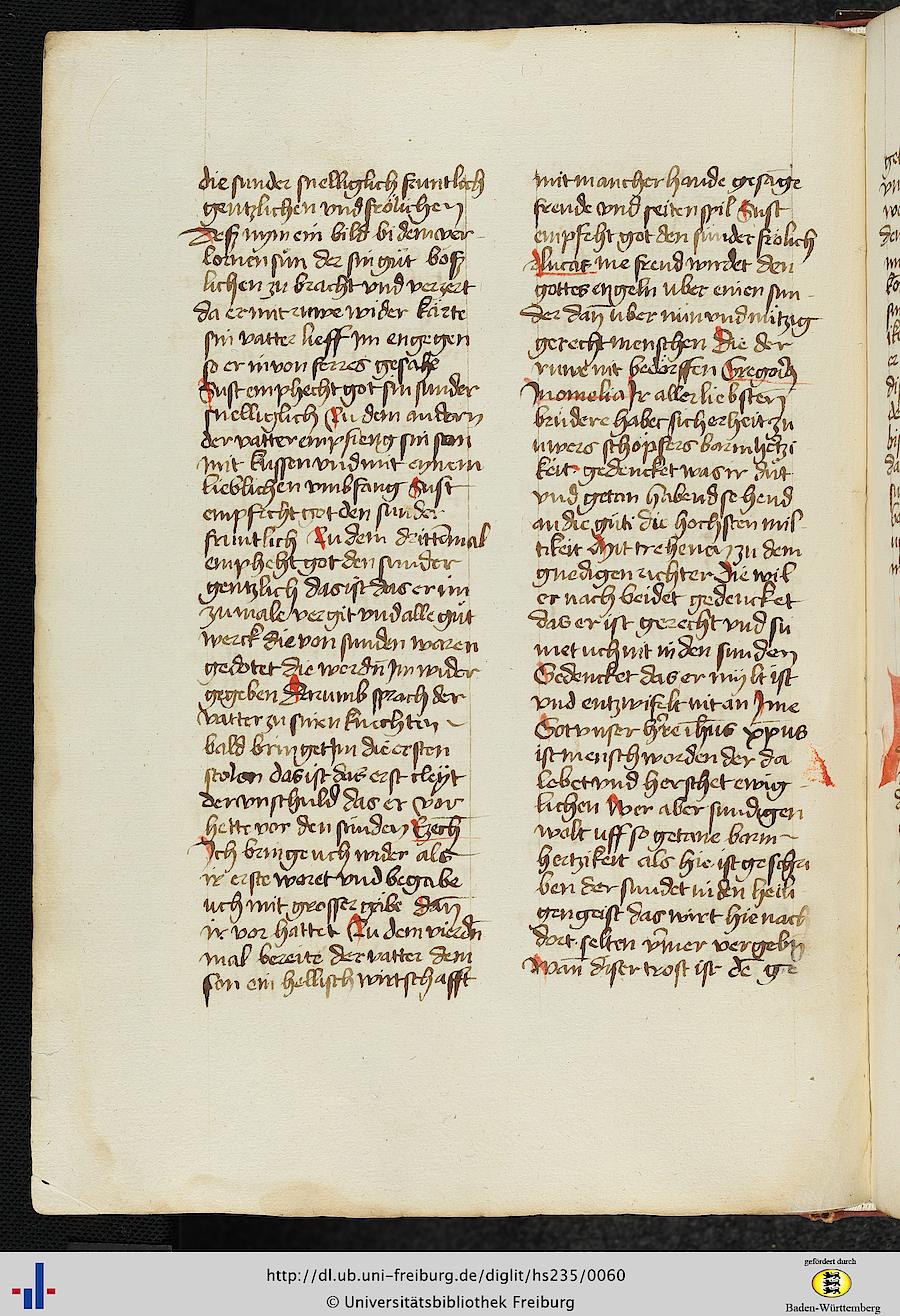 die sunder snelliglich fruntlich
gentzlichen vnd frölichen
Deß nym ein bild bi dem ver-
lornen sün der sin güt böß
lichen zu bracht vnd verzert
da er mit ruwe wider kärte
sin vatter lieff jm engegen
so er in von ferres gesahe
Sust emphecht got sin sunder
snelliglich Zu dem andern
der vatter empfieng sin son
mit kussen vnd mit eynem
lieblichen vmbfang Sust
empfecht got den sunder
fruntlich Zu dem drittē mal
empheht got den sunder
gentzlich das ist das er im
zu male vergit vnd alle güt
werck die von sunden woren
gedötet die werdn̄ jm wider
gegeben Darumb sprach der
vatter zu sinen knechten
bald bringet jm die ersten
stolen das ist das erst cleyt
der vnschuld das er vor
hette vor den sünden Ezech
Ich bringe uch wider als
ir erste woret vnd begabe
uch mit grosser gobe dan̄
ir vor hattet Zu dem vierdn̄
mal bereite der vatter dem
son ein hellisch wirtschafft
mit mancher hande gesāge
freude vnd seitenspil Sust
empfeht got den sünder frölich
Lucas me freud wirdet den
gottes engeln uber einen sun-
der dan̄ uber nün vnd nüntzig
gerecht menschen Die der
ruwe nit bedörffen Gregoriꝰ
in omelia Ir aller liebsten
brüdere habet sicherheit zu
uwers schöpfers barmhertzi
keit gedencket was ir düt
vnd getan habend sehend
an die güti die hochsten mil-
tikeit Mit trehenen zu dem
gnedigen richter Die wil
er nach beidet gedencket
das er ist gerecht vnd su
met uch nit in den sunden
Gedencket das er milt ist
vnd entzwifelt nit an jme
Got vnser h're ih̄us xp̄us
ist mensch worden der da
lebet vnd herschet ewig
lichen Wer aber sundigen
wolt uff so getane barm-
hertzikeit als hie ist geschri
ben der sundet in den heili
gen geist das wirt hie nach
dort selten ym̄er vergebn
Wan̄ diser trost ist dē ge
http://dl.ub.uni-freiburg.de/diglit/hs235/0060
© Universitätsbibliothek Freiburg
gefördert durch
Baden-Württemberg